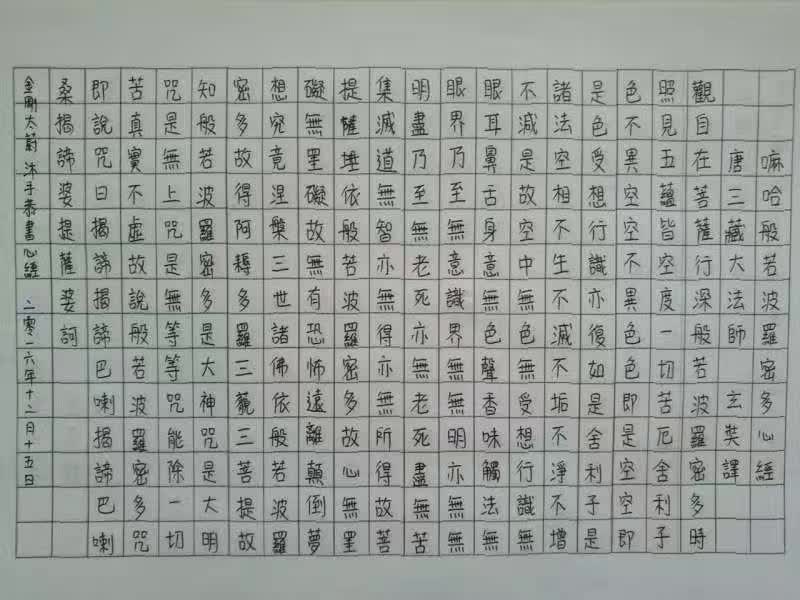 嘛哈般若波羅密多心經
唐三藏大法師玄奘譯
觀自在菩薩行深般若波羅密多時
照見五蘊皆空度一切苦厄舍利子
色不異空空不異色色即是空空即
是色受想行識亦復如是舍利子是
諸法空相不生不滅不垢不淨不增
不減是故空中無色無受想行識無
眼耳鼻舌身意無色聲香味觸法無
眼界乃至無意識界無無明亦無無
明盡乃至無老死亦無老死盡無苦
集滅道無智亦無得亦無所得故菩
提薩埵依般若波羅密多故心無罣
礙無罣礙故無有恐怖遠離顛倒夢
想究竟涅槃三世諸佛依般若波羅
密多故得阿耨多羅三藐三菩提故
知般若波羅密多是大神咒是大明
咒是無上咒是無等等咒能除一切
苦真實不虛故說般若波羅密多咒
即說咒曰揭諦揭諦巴喇揭諦巴喇
桑揭諦婆提薩婆訶
金剛太蔚沐手恭書心經 二零一六年十二月十五日